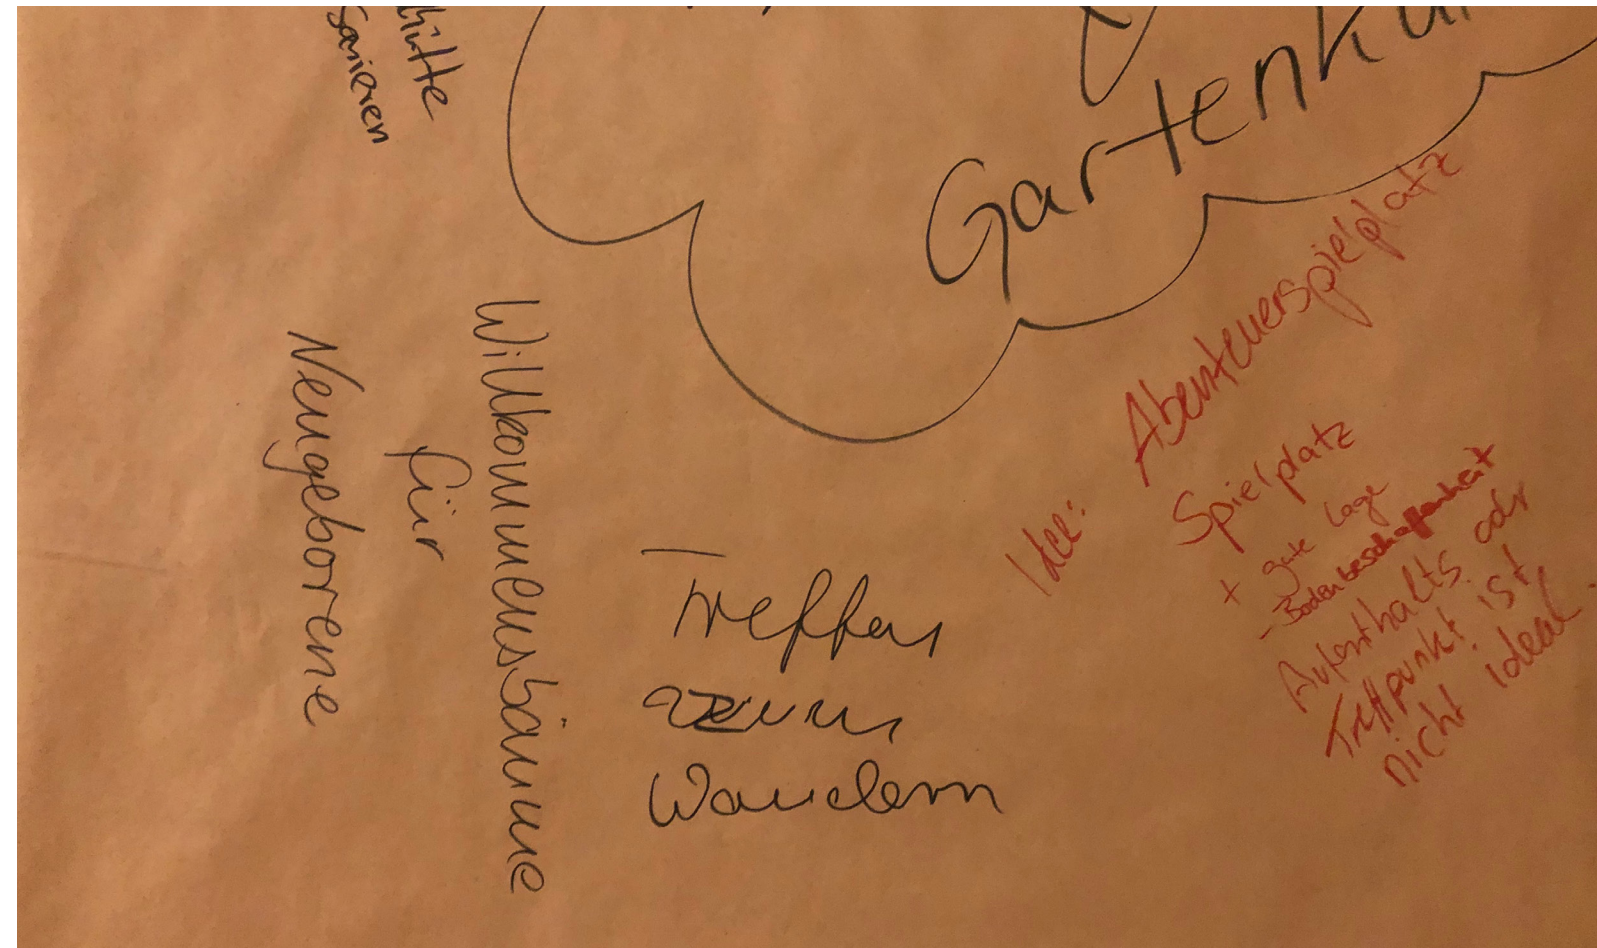 hütte
sanieren
Gartenkul
Willkommensbäume
für
Neugeborene
Treffen
zum
Wandern
Idee: Abenteuerspielplatz
Spielplatz
+ gute Lage
- Bodenbeschaffenheit
Aufenthalts odr
Treffpunkt ist
nicht ideal.